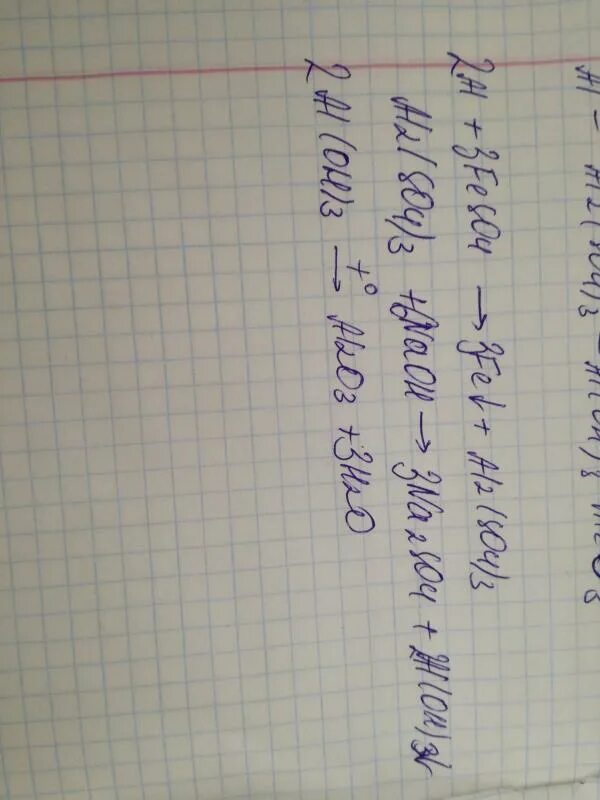 Al – Al2(SO4)3 – Al(OH)3 Al2O3
2Al + 3FeSO4 → 3Fe↓ + Al2(SO4)3
Al2(SO4)3 + 6NaOH → 3Na2SO4 + 2Al(OH)3↓
2Al(OH)3 t° → Al2O3 + 3H2O